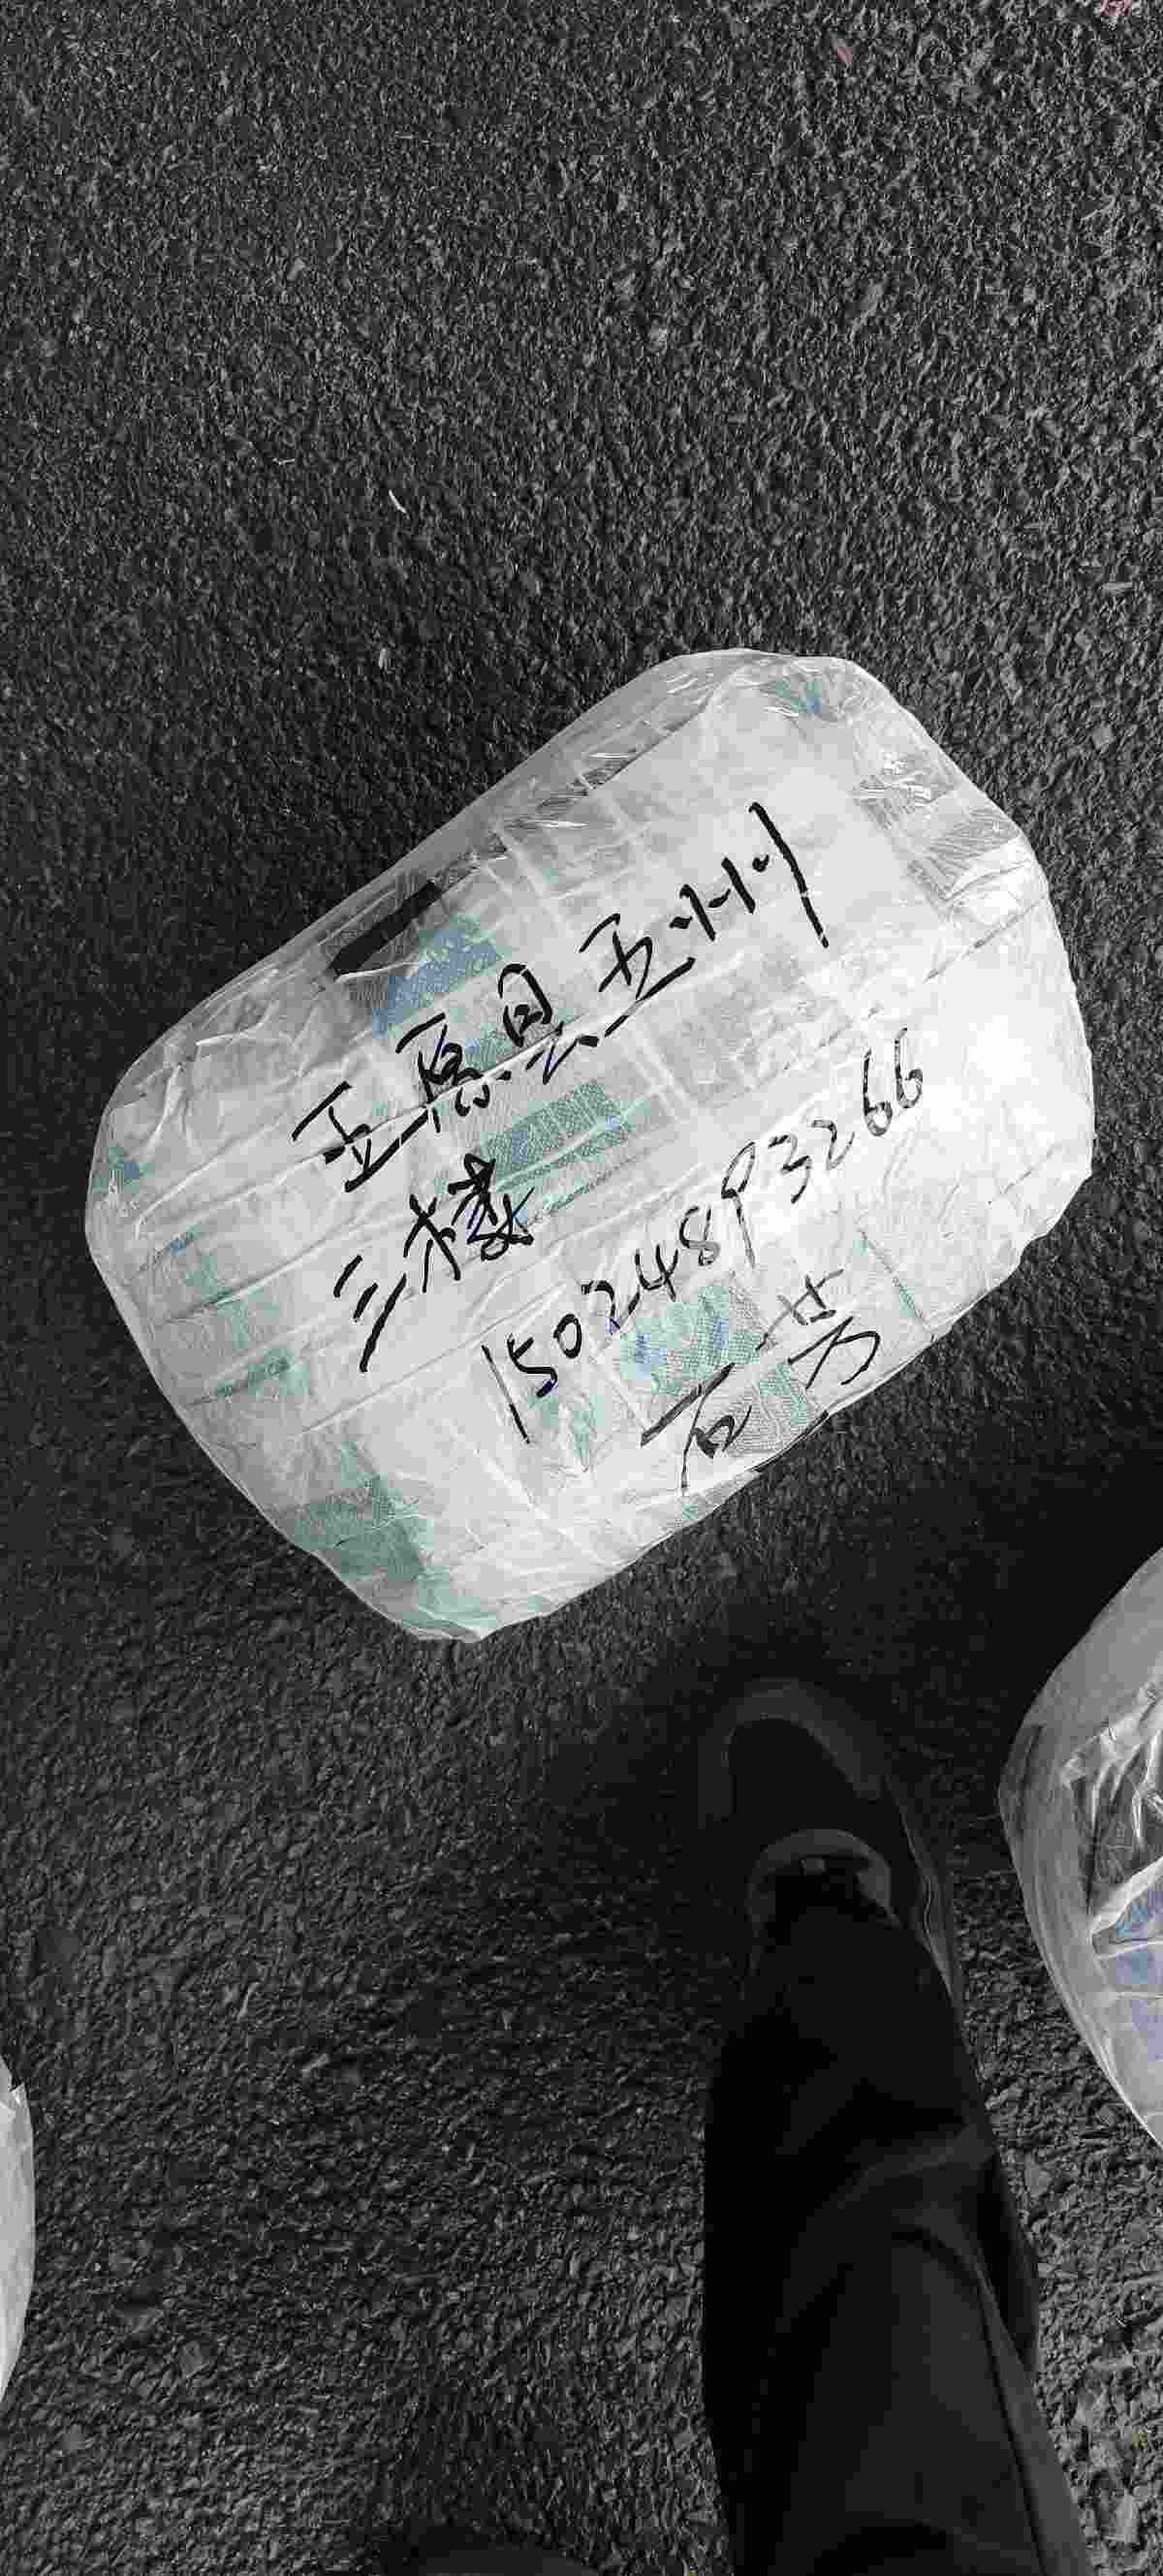 五原县五洲
三楼
15024893266
石芳